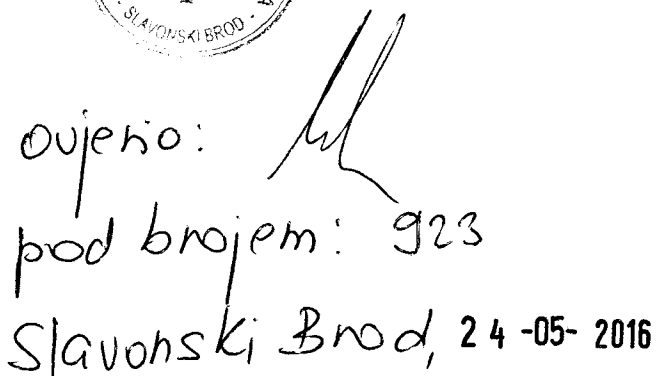 SLAVONSKI BROD
ovjerio:
pod brojem: 923
Slavonski Brod, 24-05-2016